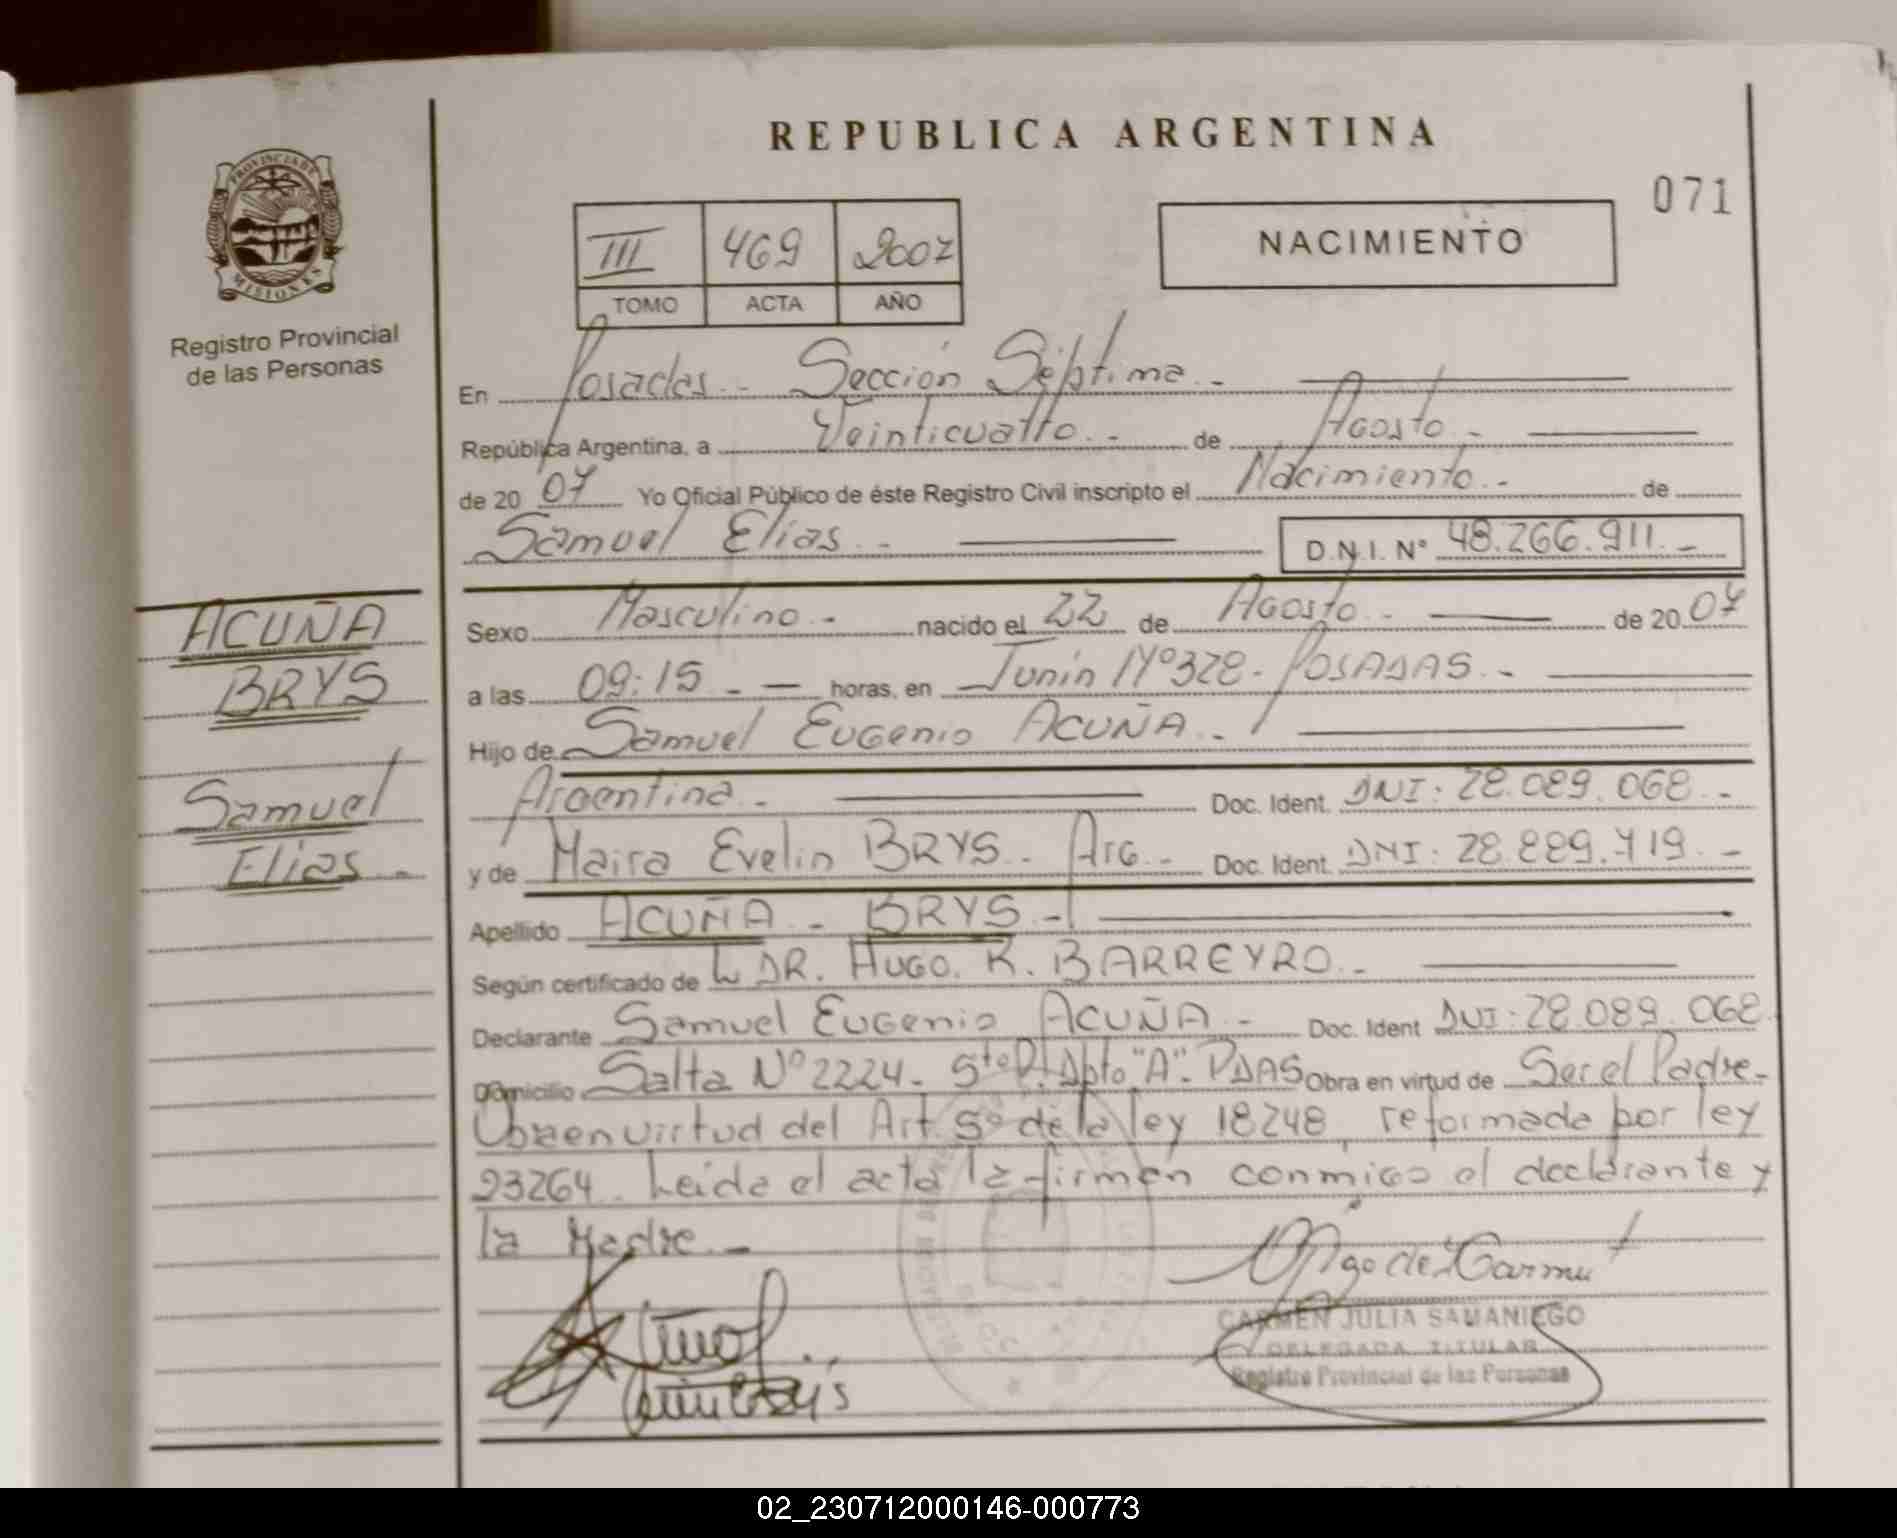 REPUBLICA ARGENTINA
071
PROVINCIA DE
MISIONES
Registro Provincial
de las Personas
III 469 2007
TOMO ACTA AÑO
NACIMIENTO
En Posadas.- Sección Séptima.-
República Argentina, a Veinticuatro.- de Agosto.-
de 20 07 Yo Oficial Público de éste Registro Civil inscripto el Nacimiento.- de
Samuel Elias.- D.N.I. N° 48.266.911.-
Sexo Masculino.- nacido el 22 de Agosto.- de 20 07
a las 09:15 - — horas, en Junín Nº 328- POSADAS.-
Hijo de Samuel Eugenio ACUÑA.-
Argentina.- Doc. Ident. DNI: 28.089.068.-
y de Maira Evelin BRYS.- Arg.- Doc. Ident. DNI: 28.889.719.-
Apellido ACUÑA - BRYS.-
Según certificado de DR. HUGO. R. BARREYRO.-
Declarante Samuel Eugenio ACUÑA.- Doc. Ident DNI: 28.089.068
Domicilio Salta Nº 2224- 5to P. Dpto "A"- PDAS Obra en virtud de Ser el Padre-
Obra en virtud del Art 5º de la ley 18248, reformada por ley
23264. Leída el acta la firman conmigo el declarante y
la Madre.-
ACUÑA
BRYS
Samuel
Elias.-
CARMEN JULIA SAMANIEGO
DELEGADA TITULAR
Registro Provincial de las Personas
02_230712000146-000773